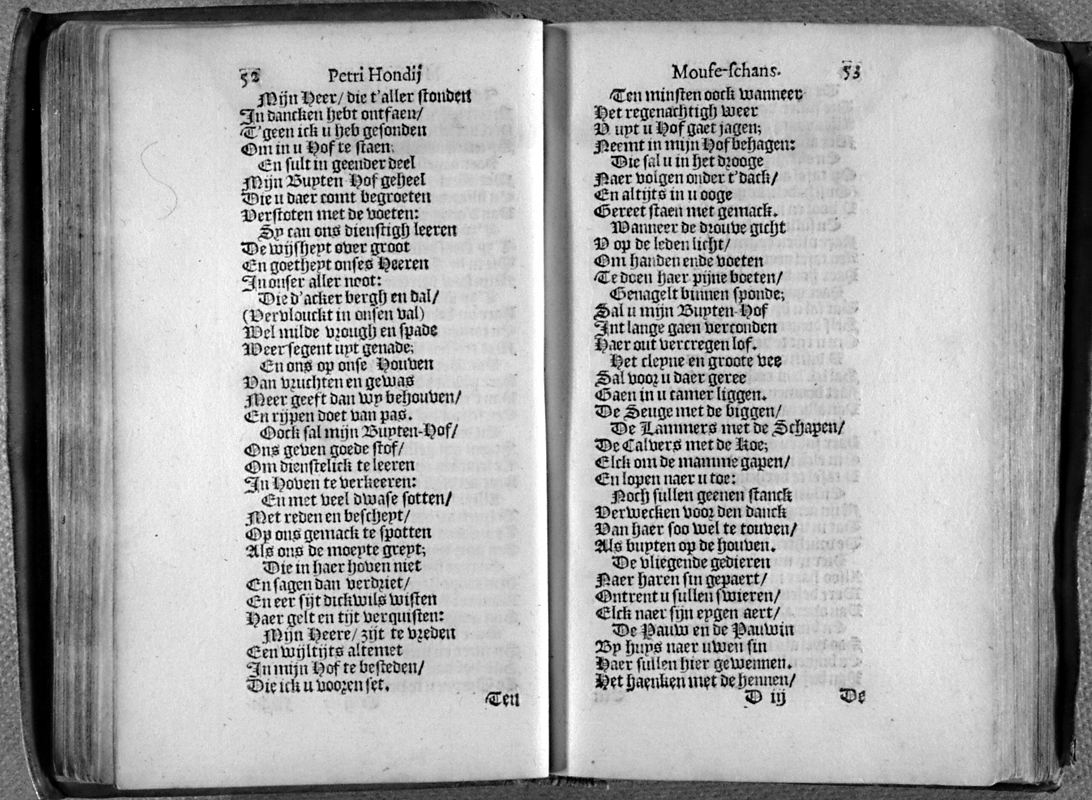 52 Petri Hondij
Mijn Heer/ die t'aller stonden
In dancken hebt ontfaen/
T'geen ick u heb gesonden
Om in u Hof te staen.
En sult in geender deel
Mijn Buyten Hof geheel
Die u daer comt begroeten
Verstoten met de voeten:
Sy can ons dienstigh leeren
De wijsheyt over groot
En goetheyt onses Heeren
In onser aller noot:
Die d'acker bergh en dal/
(Vervlouckt in onsen val)
Wel milde vrough en spade
Weer segent uyt genade;
En ons op onse Houven
Van vruchten en gewas
Meer geeft dan wy behouven/
En rijpen doet van pas.
Oock sal mijn Buyten-Hof/
Ons geven goede stof/
Om dienstelick te leeren
In Hoven te verkeeren:
En met veel dwase sotten/
Met reden en bescheyt/
Op ons gemack te spotten
Als ons de moeyte greyt;
Die in haer hoven niet
En sagen dan verdriet/
En eer sijt dickwils wisten
Haer gelt en tijt verquisten:
Mijn Heere/ zijt te vreden
Een wijltijts altemet
In mijn Hof te besteden/
Die ick u vooren set.
Ten
Mouse-schans. 53
Ten minsten oock wanneer
Het regenachtigh weer
V uyt u Hof gaet jagen;
Neemt in mijn Hof behagen:
Die sal u in het drooge
Naer volgen onder t'dack/
En altijts in u ooge
Gereet staen met gemack.
Wanneer de drouve gicht
V op de leden licht/
Om handen ende voeten
Te doen haer pijne boeten/
Genagelt binnen sponde;
Sal u mijn Buyten-Hof
Int lange gaen verconden
Haer out vercregen lof.
Het cleyne en groote vee
Sal voor u daer geree
Gaen in u camer liggen.
De Seuge met de biggen/
De Lammers met de Schapen/
De Calvers met de Koe;
Elck om de mamme gapen/
En lopen naer u toe:
Noch sullen geenen stanck
Verwecken voor den danck
Van haer soo wel te touven/
Als buyten op de houven.
De vliegende gedieren
Naer haren sin gepaert/
Ontrent u sullen swieren/
Elck naer sijn eygen aert/
De Pauw en de Pauwin
By huys naer uwen sin
Haer sullen hier gewennen.
Het haenken met de hennen/
D iij De